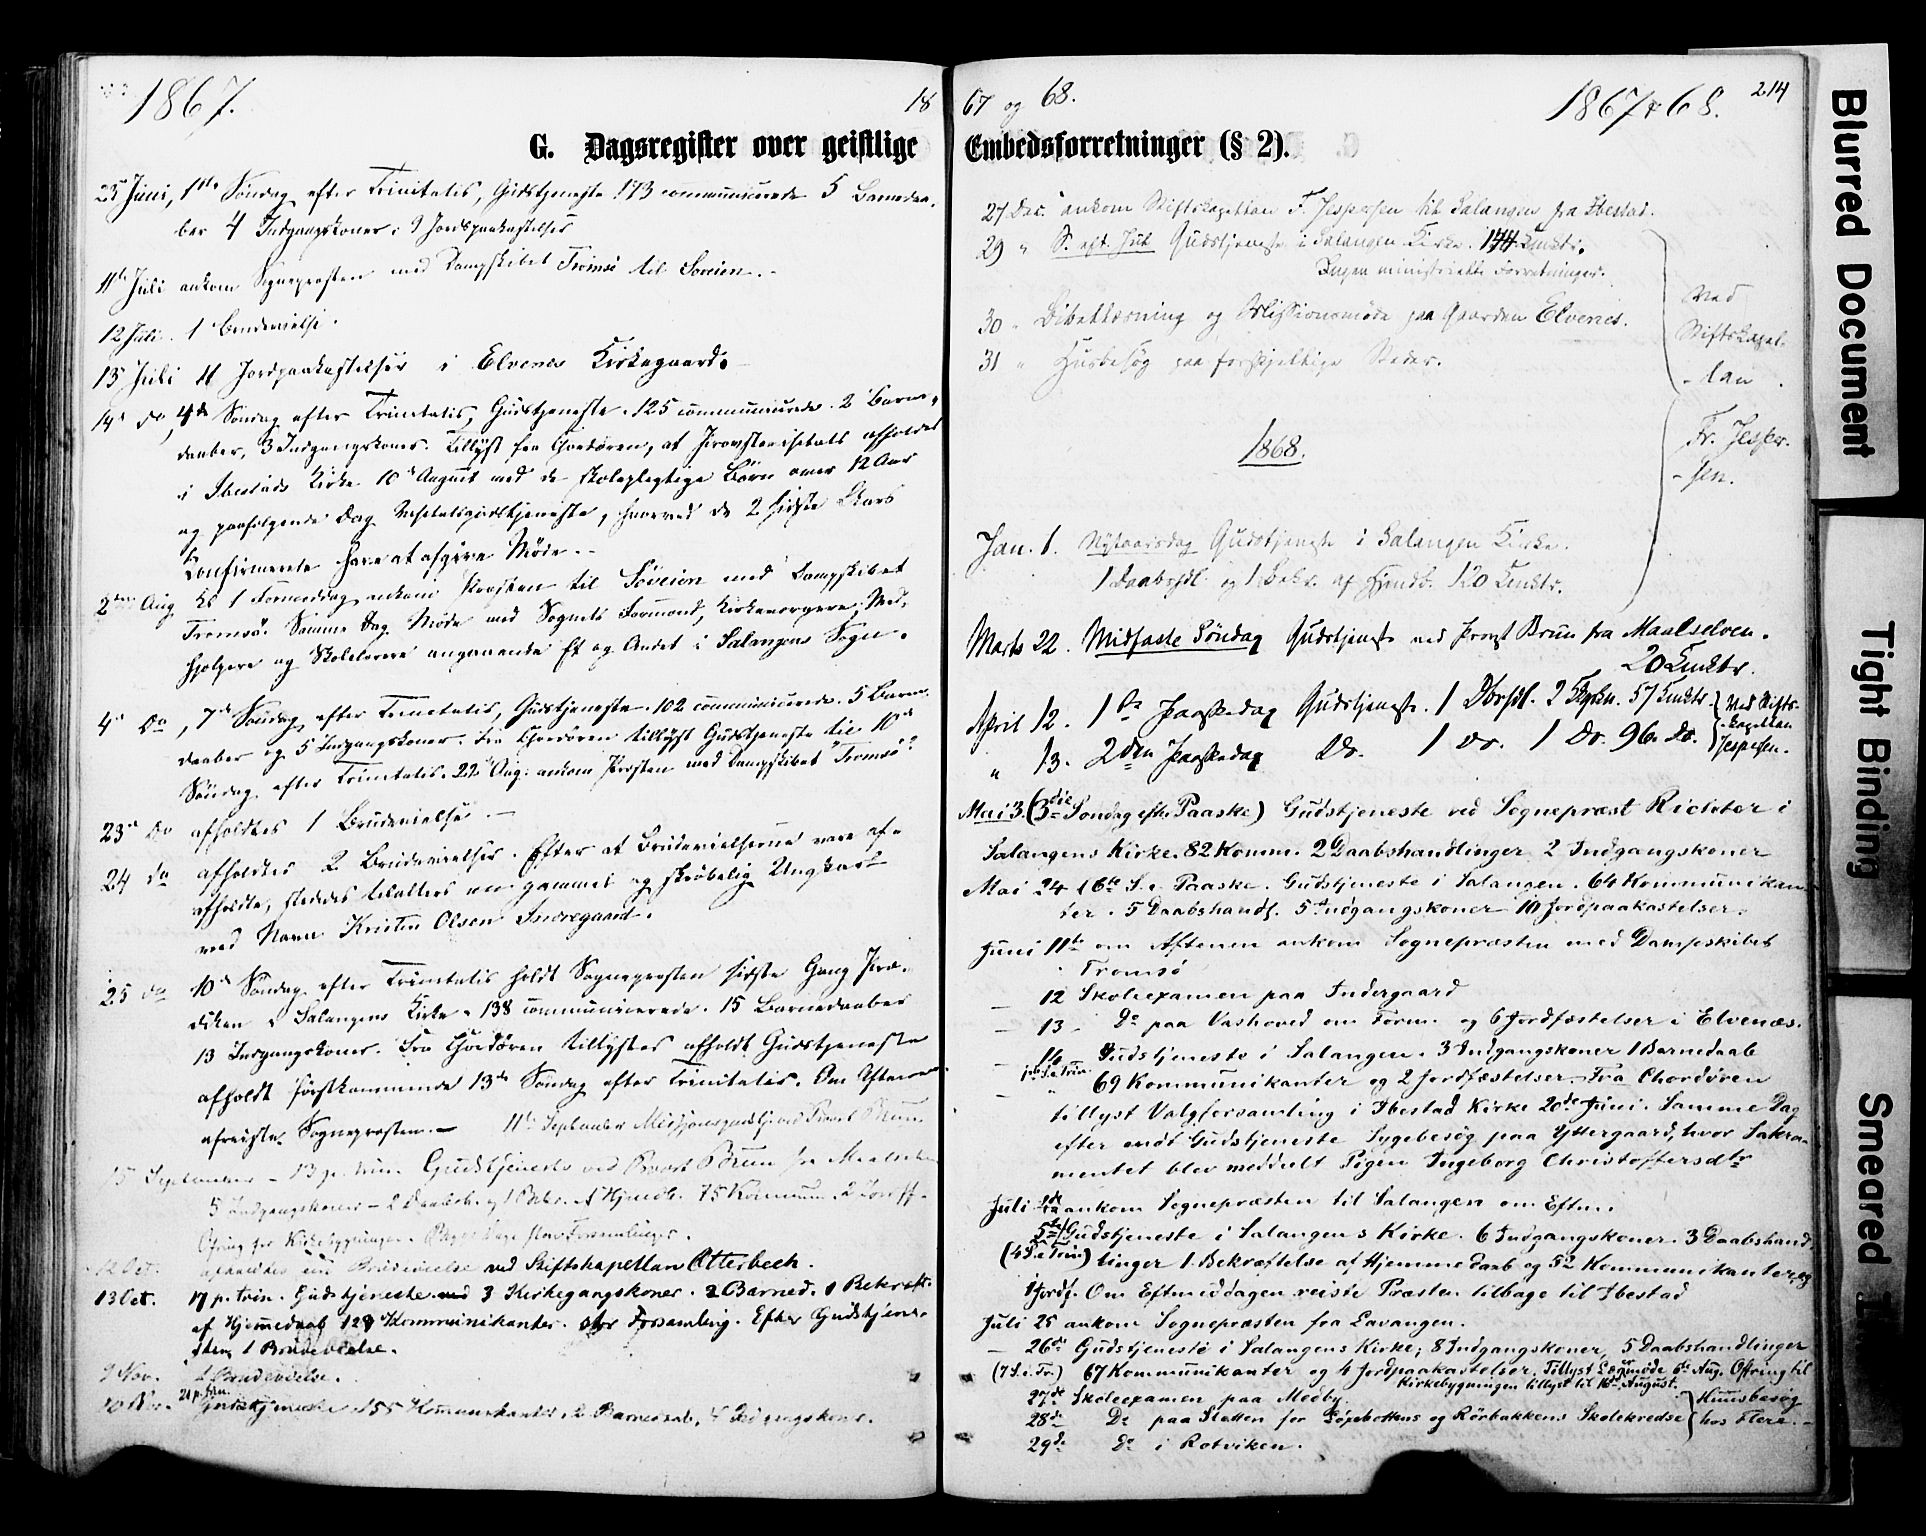 1867.
18
G. Dagsregister over geistlige
23 Juni, 1ste Søndag efter Trinitatis, Gudstjeneste 173 communicerede 5 Barnedaa-
ber 4 Indgangskoner, 9 Jordpaakastelser
11te Juli ankom Sognepresten med Dampskibet Tromsø til Søveien. -
12 Juli. 1 Brudevielse.
13 Juli 11 Jordpaakastelser i Elvenes Kirkegaard. -
14d Do, 4de Søndag efter Trinitatis, Gudstjeneste. 125 communicerede. 2 Barne-
daaber, 3 Indgangskoner. Tillyst fra Chordøren, at Provstevisitats afholdes
i Ibestads Kirke 10d August med de skolepligtige Børn over 12 Aar
og paafølgende Dag Visitatsgudstjeneste, hvorved de 2 sidste Aars
Konfirmerede have at afgive Møde. -
2den Aug Kl 1 Formiddag ankom Presten til Søveien med Dampskibet
Tromsø. Samme Dag Møde med Sognets Formænd, Kirkeværgere, Med-
hjelpere og Skolelærere angaaende Et og Andet i Salangens Sogn.
4d Do, 7de Søndag efter Trinitatis, Gudstjeneste. 102 communicerede. 5 Barne-
daaber og 5 Indgangskoner. Fra Chordøren tillyst Gudstjeneste til 10de
Søndag efter Trinitatis. 22 Aug. ankom Presten med Dampskibet "Tromsø"
23d Do afholdtes 1 Brudevielse. -
24 Do afholdtes 2 Brudevielser. Efter at Brudevielserne vare af-
holdte, stededes til Alters en gammel og skrøbelig Ungkarl
ved Navn Kristen Olsen Indregaard.
25 Do 10de Søndag efter Trinitatis holdt Sognepresten sidste Gang Præ-
diken i Salangens Kirke. 138 communicerede. 15 Barnedaaber
13 Indgangskoner. Fra Chordøren tillystes afholdt Gudstjeneste
afholdt førstkommende 13de Søndag efter Trinitatis. Om Aftenen
afreiste Sognepresten. - 11te September Missionsgudstj. ved Provst Brun
15 September - 13 p. trin. Gudstjeneste ved Provst Brun fra Maalselven
5 Indgangskoner - 2 Daabsh. og 1 Bekr. af Hjmdb. 75 Kommun. 2 Jordf.
Ofring for Kirkebygningen.
12 Oct. afholdtes en Brudevielse ved Stiftskapellan Otterbech.
13 Oct. 17 p. trin. Gudstjeneste 3 Kirkegangskoner. 2 Barned. 1 Bekræft.
af Hjemmedaab 128 Kommunikanter. stor Forsamling. Efter Gudstjene-
sten 1 Brudevielse.
9 Nov. 1 Brudevielse.
10 Nov. 21 p. trin. Gudstjeneste 155 Kommunikanter, 2 Barnedaab, 4 Indgangskoner.
67 og 68.
1867 & 68.
214
Embedsforretninger (§ 2).
27 Dec. ankom Stiftskapellan F. Jespersen til Salangen fra Ibestad.
29 " S. eft. Jul Gudstjeneste i Salangen Kirke. 144 Cmktr.
Ingen ministerielle Forretninger.
30 " Bibellæsning og Missionsmøde paa Gaarden Elvenes.
31 " Husbesøg paa forskjellige Steder.
Ved
Stiftskapel-
-lan
Fr. Jesper-
-sen.
1868.
Jan. 1. Nytaarsdag Gudstjeneste i Salangen Kirke.
1 Daabshdl. og 1 Bekr. af Hjmdb. 120 Cmktr.
Marts 22. Midfaste Søndag Gudstjeneste ved Provst Brun fra Maalselven.
20 Cmktr.
April 12. 1ste Paaskedag Gudstjeneste. 1 Dbshdl. 2 57 Cmktr.
" 13. 2den Paaskedag Do. 1 Do. 1 Do. 96. Do.
Ved Stifts-
kapellan
Jespersen.
Mai 3. (3die Søndag efter Paaske) Gudstjeneste ved Sognepræst Richter i
Salangens Kirke. 82 Komm. 2 Daabshandlinger 2 Indgangskoner
Mai 24 (6te S. e. Paaske. Gudstjeneste i Salangen. 64 Kommunikan-
ter. 5 Daabshandl. 5 Indgangskoner 10 Jordpaakastelser.
Juni 11te om Aftenen ankom Sognepræsten med Dampskibet
Tromsø
- 12 Skoleexamen paa Indergaard
- 13 - Do paa Vashoved om Form. og 6 Jordfæstelser i Elvenæs.
- 14 Gudstjeneste i Salangen. 3 Indgangskoner 1 Barnedaab
1ste S. e. Trin. 69 Kommunikanter og 2 Jordfæstelser. Fra Chordøren
tillyst Valgforsamling i Ibestad Kirke 20de Juni. Samme Dag
efter endt Gudstjeneste Sygebesøg paa Yttergaard, hvor Sakra-
mentet blev meddelt Pigen Ingeborg Christoffersdtr
Juli ankom Sognepræsten til Salangen om Eftm.
5te Gudstjeneste i Salangens Kirke. 6 Indgangskoner. 3 Daabshand-
(4 S. e. Trin) linger 1 Bekræftelse af Hjemmedaab og 52 Kommunikanter, og
1 Jordf. Om Eftmiddagen reiste Præsten tilbage til Ibestad
Juli 25 ankom Sognepræsten fra Lavangen.
- 26de Gudstjeneste i Salangens Kirke, 8 Indgangskoner 5 Daabshandlinger
(7 S. e. Tr.) 67 Kommunikanter og 4 Jordpaakastelser. Tillyst Lægmøde 6te Aug. Ofring til
Kirkebygningen tillyst til 16de August.
27de Skoleexamen paa Medby.
28de Do paa Sletten for Løgsbottens og Rørbakkens Skolekredse
29de Do i Rotviken.
Huusbesøg
hos Flere. -
Blurred Document
Tight Binding
Smeared I